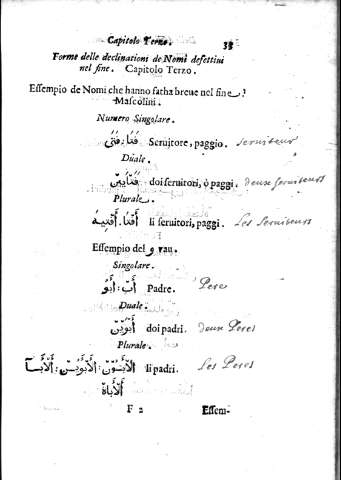 Capitolo Terzo. 35
Forme delle declinationi de Nomi defettini
nel fine. Capitolo Terzo.
Essempio de Nomi che hanno fatha breue nel fine
Mascolini.
Numero Singolare.
Seruitore, paggio. serviteur
Duale.
doi seruitori, ò paggi. deux serviteurs
Plurale.
li seruitori, paggi. Les serviteurs
Essempio del و vau.
Singolare.
Padre. Pere
Duale.
doi padri. deux Peres
Plurale.
li padri. Les Peres
F 2 Essem-